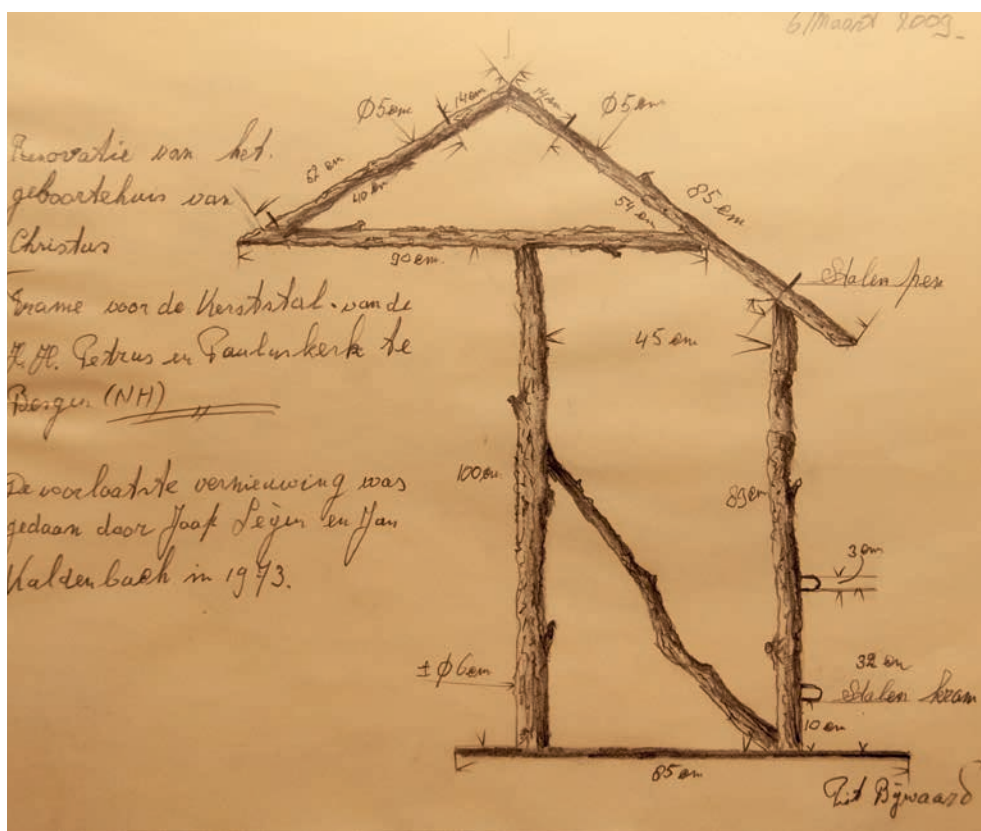 6/Maart 2009
Renovatie van het
geboortehuis van
Christus
Frame voor de Kerststal van de
H.H. Petrus en Pauluskerk te
Bergen (NH)
De voorlaatste vernieuwing was
gedaan door Jaap Leijen en Jan
Kaldenbach in 1973.
14 cm
14 cm
Ø5cm
Ø5cm
62 cm
40 cm
85 cm
54 cm
90 cm
Stalen pen
45 cm
100 cm
89 cm
3 cm
± Ø6cm
32 cm
Stalen kram
10 cm
85 cm
Piet Bijwaard